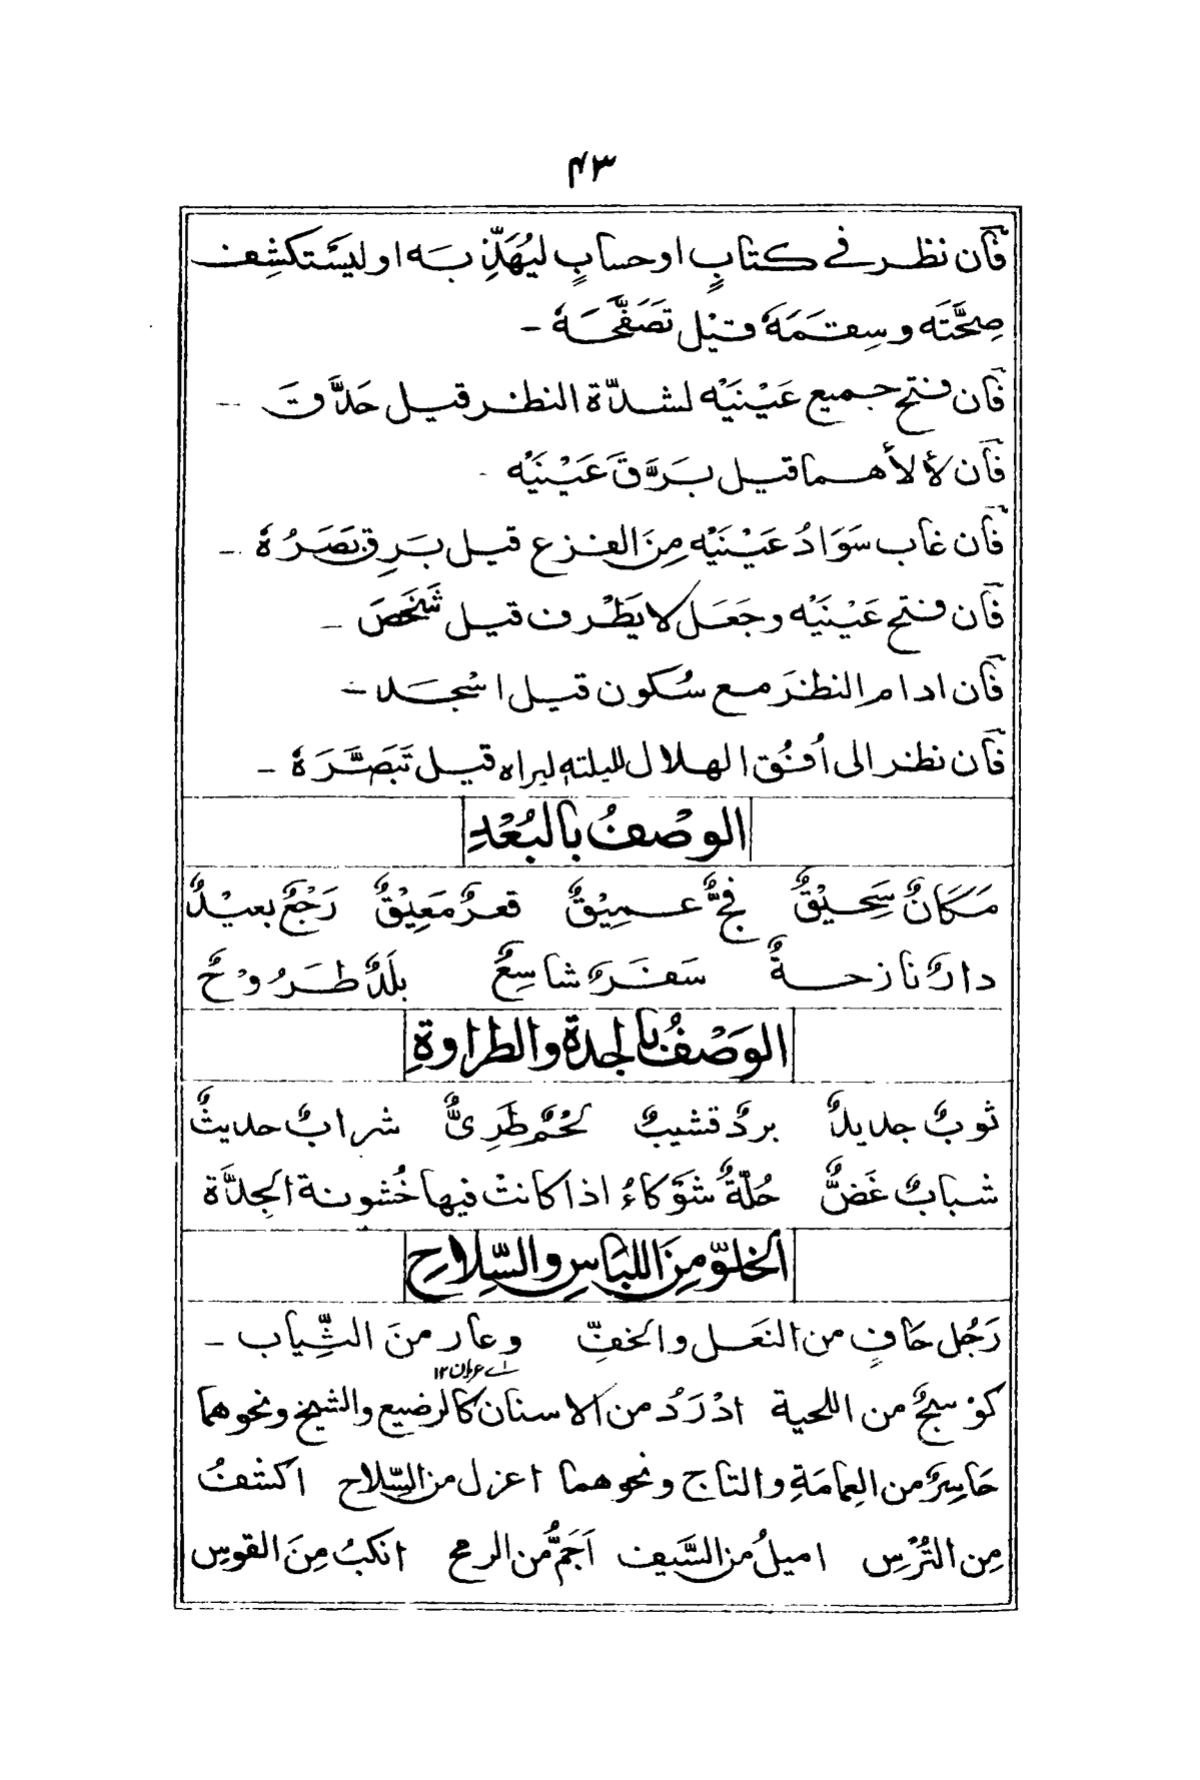 ۴۳
فَآن نظر فی کتابٍ او حسابٍ لیُهَذِّبَه او لیَستکشِف
صِحَّتَه و سِقمَهٗ قیْل تَصَفَّحَهٗ -
فَآن فتح جمیع عَیْنَیْه لشدّة النظر قیل حَدَّقَ --
فَآن لألأهما قیل بَرَّقَ عَیْنَیْه -
فَآن غاب سَوَادُ عَیْنَیْه مِنَ الفزع قیل بَرِق بَصَرُهٗ -
فَآن فتح عَیْنَیْه وجَعَل لا یَطْرف قیل شَخَصَ -
فَآن ادام النظرَ مع سُکون قیل اسْجَدَ -
فَآن نظر الی اُفُق الهلال للیلته لیراه قیل تَبَصَّرَهٗ -
الوصْفُ بالبُعْدِ
مَکَانٌ سَحِیْقٌ فجٌّ عمِیْقٌ قعرٌ مَعِیْقٌ رَجْعٌ بعیْدٌ
دارٌ نازحةٌ سَفَرٌ شاسِعٌ بلَدٌ طَرُوْحٌ
الوَصْفُ بالجدة والطراوةِ
ثوبٌ جدیدٌ بردٌ قشیبٌ لحْمٌ طَرِیٌّ شرابٌ حدیثٌ
شبابٌ غَضٌّ حُلّةٌ شَوْکاءُ اذا کانتْ فیها خُشونة الجِدَّة
الخلوّ مِنَ اللبَاسِ والسِّلاحِ
رَجُل حَافٍ من النَعَل والخفِّ وعار منَ الثِّیاب -
اے عریان ۱۲
کوْسجٌ من اللحیة ادْرَدُ من الاسنان کالرضیع والشیخ ونحوهما
حَاسِرٌ من العِمامَةِ والتاج ونحوهما اعزل من السِّلاح اکشفُ
مِن التُرْسِ امیلُ من السَّیف اَجَمُّ من الرمح انکبُ مِنَ القوسِ